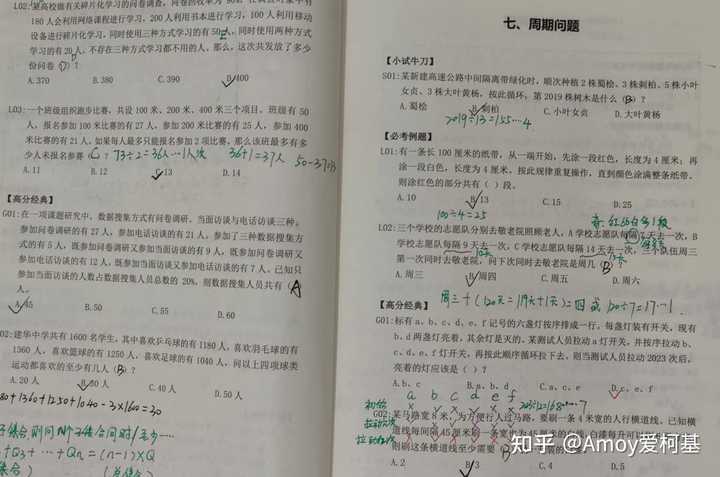 L02:某高校做有关碎片化学习的问卷调查,问卷回收率为 90%,
180 人会利用网络课程进行学习,200 人利用书本进行学习,100 人利用移动
设备进行碎片化学习,同时使用三种方式学习的有 50 人,同时使用两种方式
学习的有 20 人,不存在三种方式学习都不用的人。那么,这次共发放了多少
份问卷( D )?
A. 370 B. 380 C. 390 D. 400
L03:一个班级组织跑步比赛,共设 100 米、200 米、400 米三个项目。班级有 50
人,报名参加 100 米比赛的有 27 人,参加 200 米比赛的有 25 人,参加 400
米比赛的有 21 人。如果每人最多只能报名参加 2 项比赛,那么该班最多有多
少人未报名参赛( C )? 73÷2=36人…1人次 36+1=37人 50-37=13
A. 11 B. 12 C. 13 D. 14
【高分经典】
G01:在一项课题研究中,数据搜集方式有问卷调研、当面访谈与电话访谈三种。
参加问卷调研的有 27 人,参加电话访谈的有 21 人,参加了三种数据搜集方
式的有 5 人,既参加问卷调研又参加当面访谈的有 9 人,既参加问卷调研又
参加电话访谈的有 12 人,既参加当面访谈又参加电话访谈的有 7 人。已知只
参加当面访谈的人数占数据搜集人员总数的 20%,则数据搜集人员共有( A
人。
A. 45 B. 50 C. 55 D. 60
02:建华中学共有 1600 名学生,其中喜欢乒乓球的有 1180 人,喜欢羽毛球的有
1360 人,喜欢篮球的有 1250 人,喜欢足球的有 1040 人,问以上四项球类
运动都喜欢的至少有几人( B )?
A. 20 人 B. 30 人 C. 40 人 D. 50 人
80+1360+1250+1040-3×1600=30
七、周期问题
【小试牛刀】
S01:某新建高速公路中间隔离带绿化时,顺次种植 2 株蜀桧、3 株刺柏、5 株小叶
女贞、3 株大叶黄杨,按此循环,第 2019 株树木是什么( B )?
A. 蜀桧 B. 刺柏 C. 小叶女贞 D. 大叶黄杨
2019÷13=155…4
【必考例题】
L01:有一条长 100 厘米的纸带,从一端开始,先涂一段红色,长度为 4 厘米;再
涂一段白色,长度为 4 厘米,按此规律重复操作,直到颜色涂满整条纸带。
则涂红色的部分共有( )段。
A. 10 B. 13 C. 15 D. 25
100÷4=25
L02:三个学校的志愿队分别去敬老院照顾老人,A 学校志愿队每隔 7 天去一次,B
学校志愿队每隔 9 天去一次,C 学校志愿队每隔 14 天去一次,三个队伍周三
第一次同时去敬老院,问下次同时去敬老院是周几( B )?
A. 周三 B. 周四 C. 周五 D. 周六
周三+(120天=119天+1天)=四 或 120÷7=17…1
【高分经典】
G01:标有 a、b、c、d、e、f 记号的六盏灯按序排成一行,每盏灯装有开关,现有
b、d 两盏灯亮着,其余灯是灭的。某测试人员拉动 a 灯开关,并按序拉动 b、
c、d、e、f 灯开关,再按此顺序循环拉下去,则当测试人员拉动 2023 次后,
亮着的灯应该是( )?
A. b、c B. a、b、d C. a、c、e D. c、e、f
a b c d e f
初始
G02:某马路宽 8 米,为方便行人过马路,要刷一条 4 米宽的人行横道线。已知横
A. 2 B. 3 C. 4 D. 5
知乎 @Amoy爱柯基